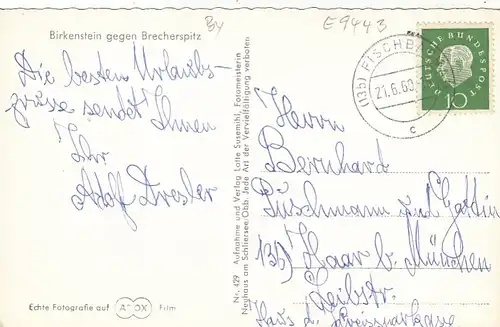 By
E 9443
Birkenstein gegen Brecherspitz
Die besten Urlaubs-
grüsse sendet Ihnen
Ihr
Adolf Drexler
Echte Fotografie auf AFOX Film
Nr. 429 Aufnahme und Verlag Lotte Susemihl, Fotomeisterin
Neuhaus am Schliersee/Obb. Jede Art der Vervielfältigung verboten
(13b) FISCHB
21.6.60
c
DEUTSCHE BUNDESPOST
10
Herrn
Bernhard
Püschmann und Gattin
13b) Haar b. München
Leibstr.
Haus d. Kreissparkasse